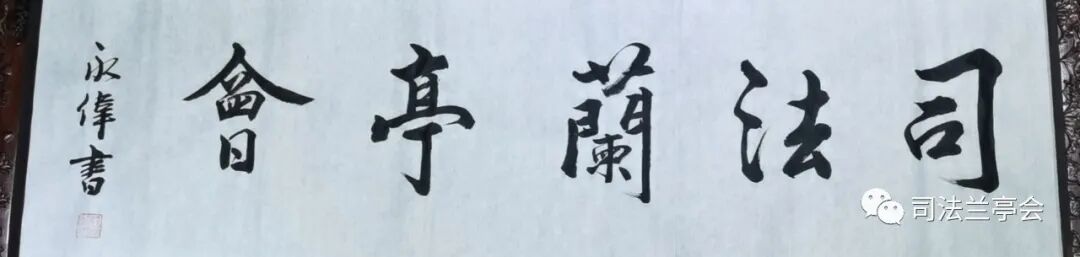 司法蘭亭會
永偉書
司法兰亭会